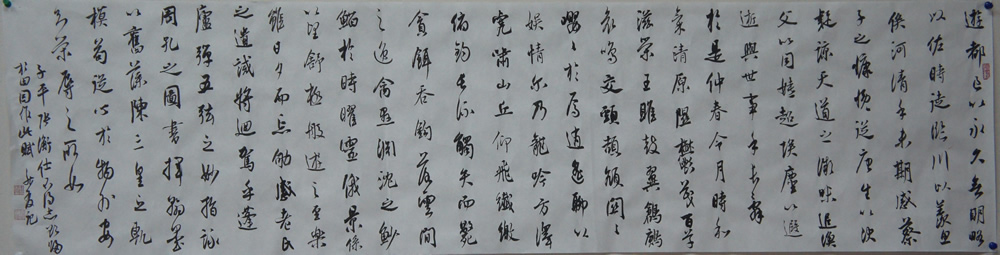 遊都邑以永久無明略
以佐時徒臨川以羨魚
俟河清乎未期感蔡
子之慷慨從唐生以決
疑諒天道之微昧追漁
父以同嬉超埃塵以遐
逝與世事乎長辭
於是仲春令月時和
氣清原隰鬱茂百草
滋榮王雎鼓翼鶬鶊
哀鳴交頸頡頏関〻
嚶〻於焉逍遙聊以
娛情尔乃龍吟方澤
虎嘯山丘仰飛纖繳
俯釣長流觸矢而斃
貪餌吞鉤落雲間
之逸禽懸淵沈之魦
鰡於時曜靈俄景係
以望舒極般遊之至樂
雖日夕而忘劬感老氏
之遺誡將迴駕乎蓬
廬彈五弦之妙指詠
周孔之圖書揮翰墨
以奮藻陳三皇之軌
模苟從心於物外安
知榮辱之所如
子平張衡仕不得志欲歸
於田因作此賦 記